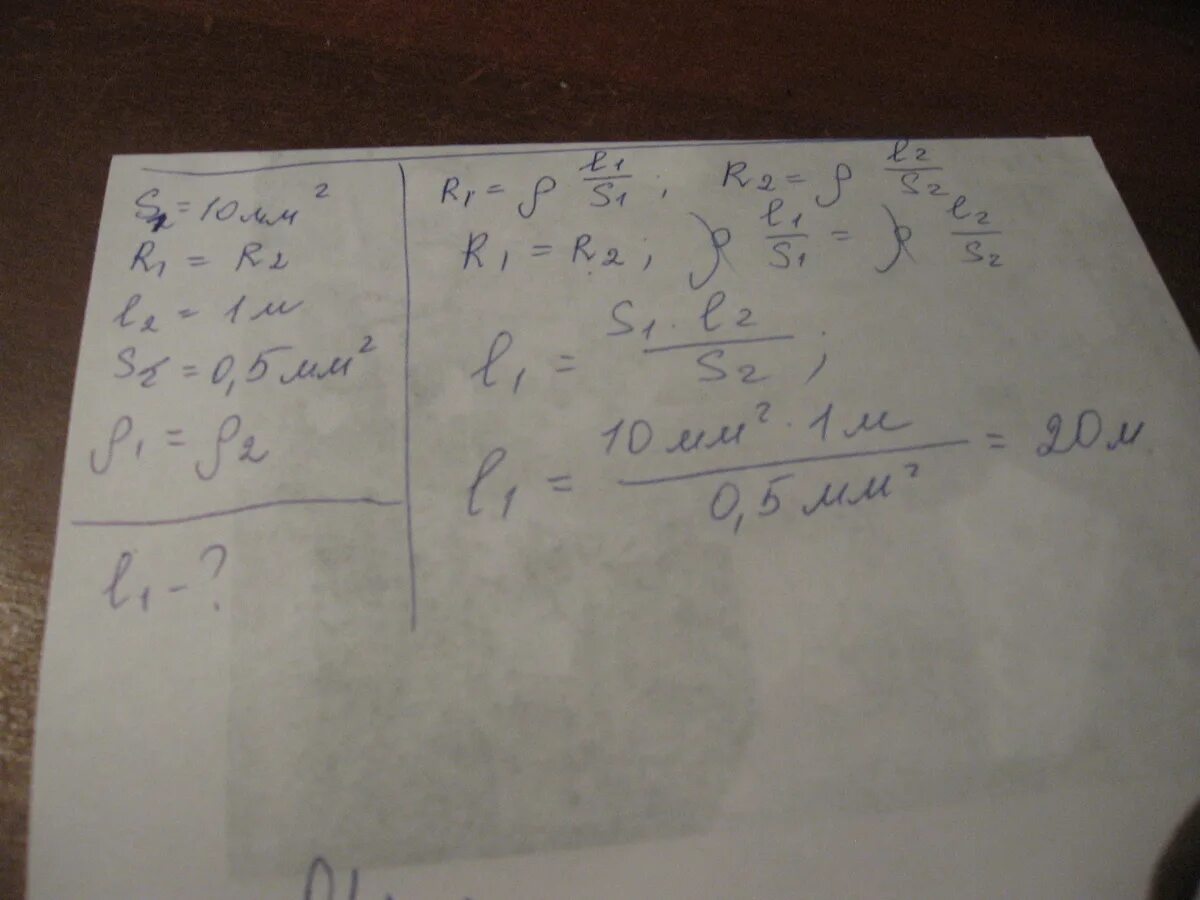 S₂ = 10 мм²
R₁ = R₂
l₂ = 1 м
S₂ = 0,5 мм²
ρ₁ = ρ₂
l₁ - ?
R₁ = ρ l₁/S₁ ; R₂ = ρ l₂/S₂
R₁ = R₂ ; ρ l₁/S₁ = ρ l₂/S₂
l₁ = S₁ · l₂/S₂ ;
l₁ = 10 мм² · 1 м/0,5 мм² = 20 м